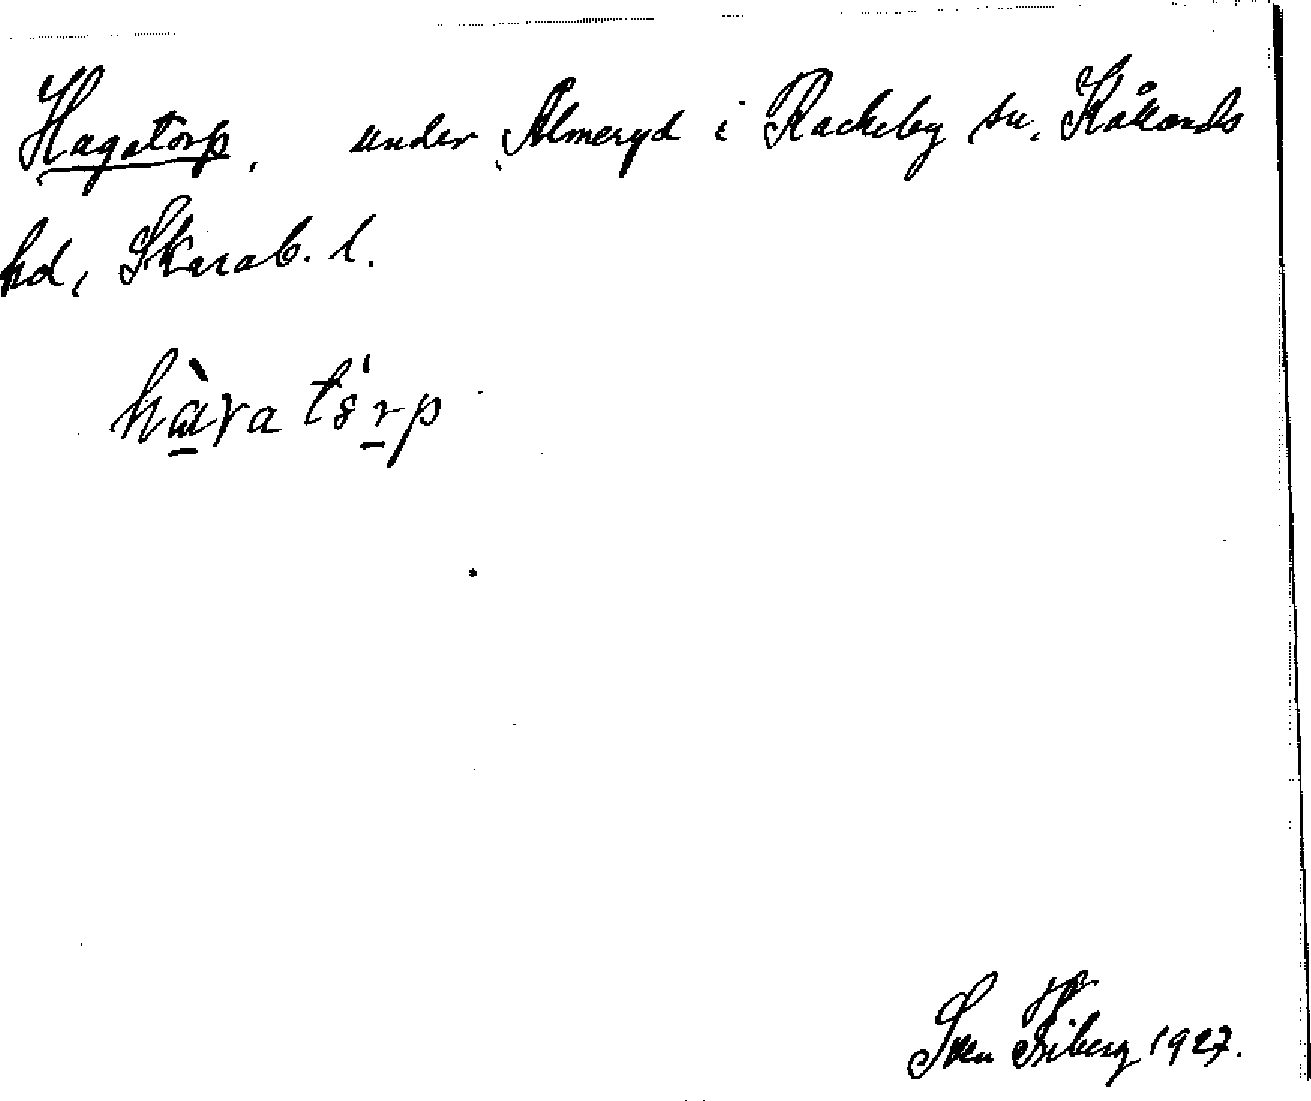 Hagatorp. under Almeryd i Rackeby sn. Kållands
hd, Skarab. l.
hàɣa tórp
Sven Fiberg 1927.